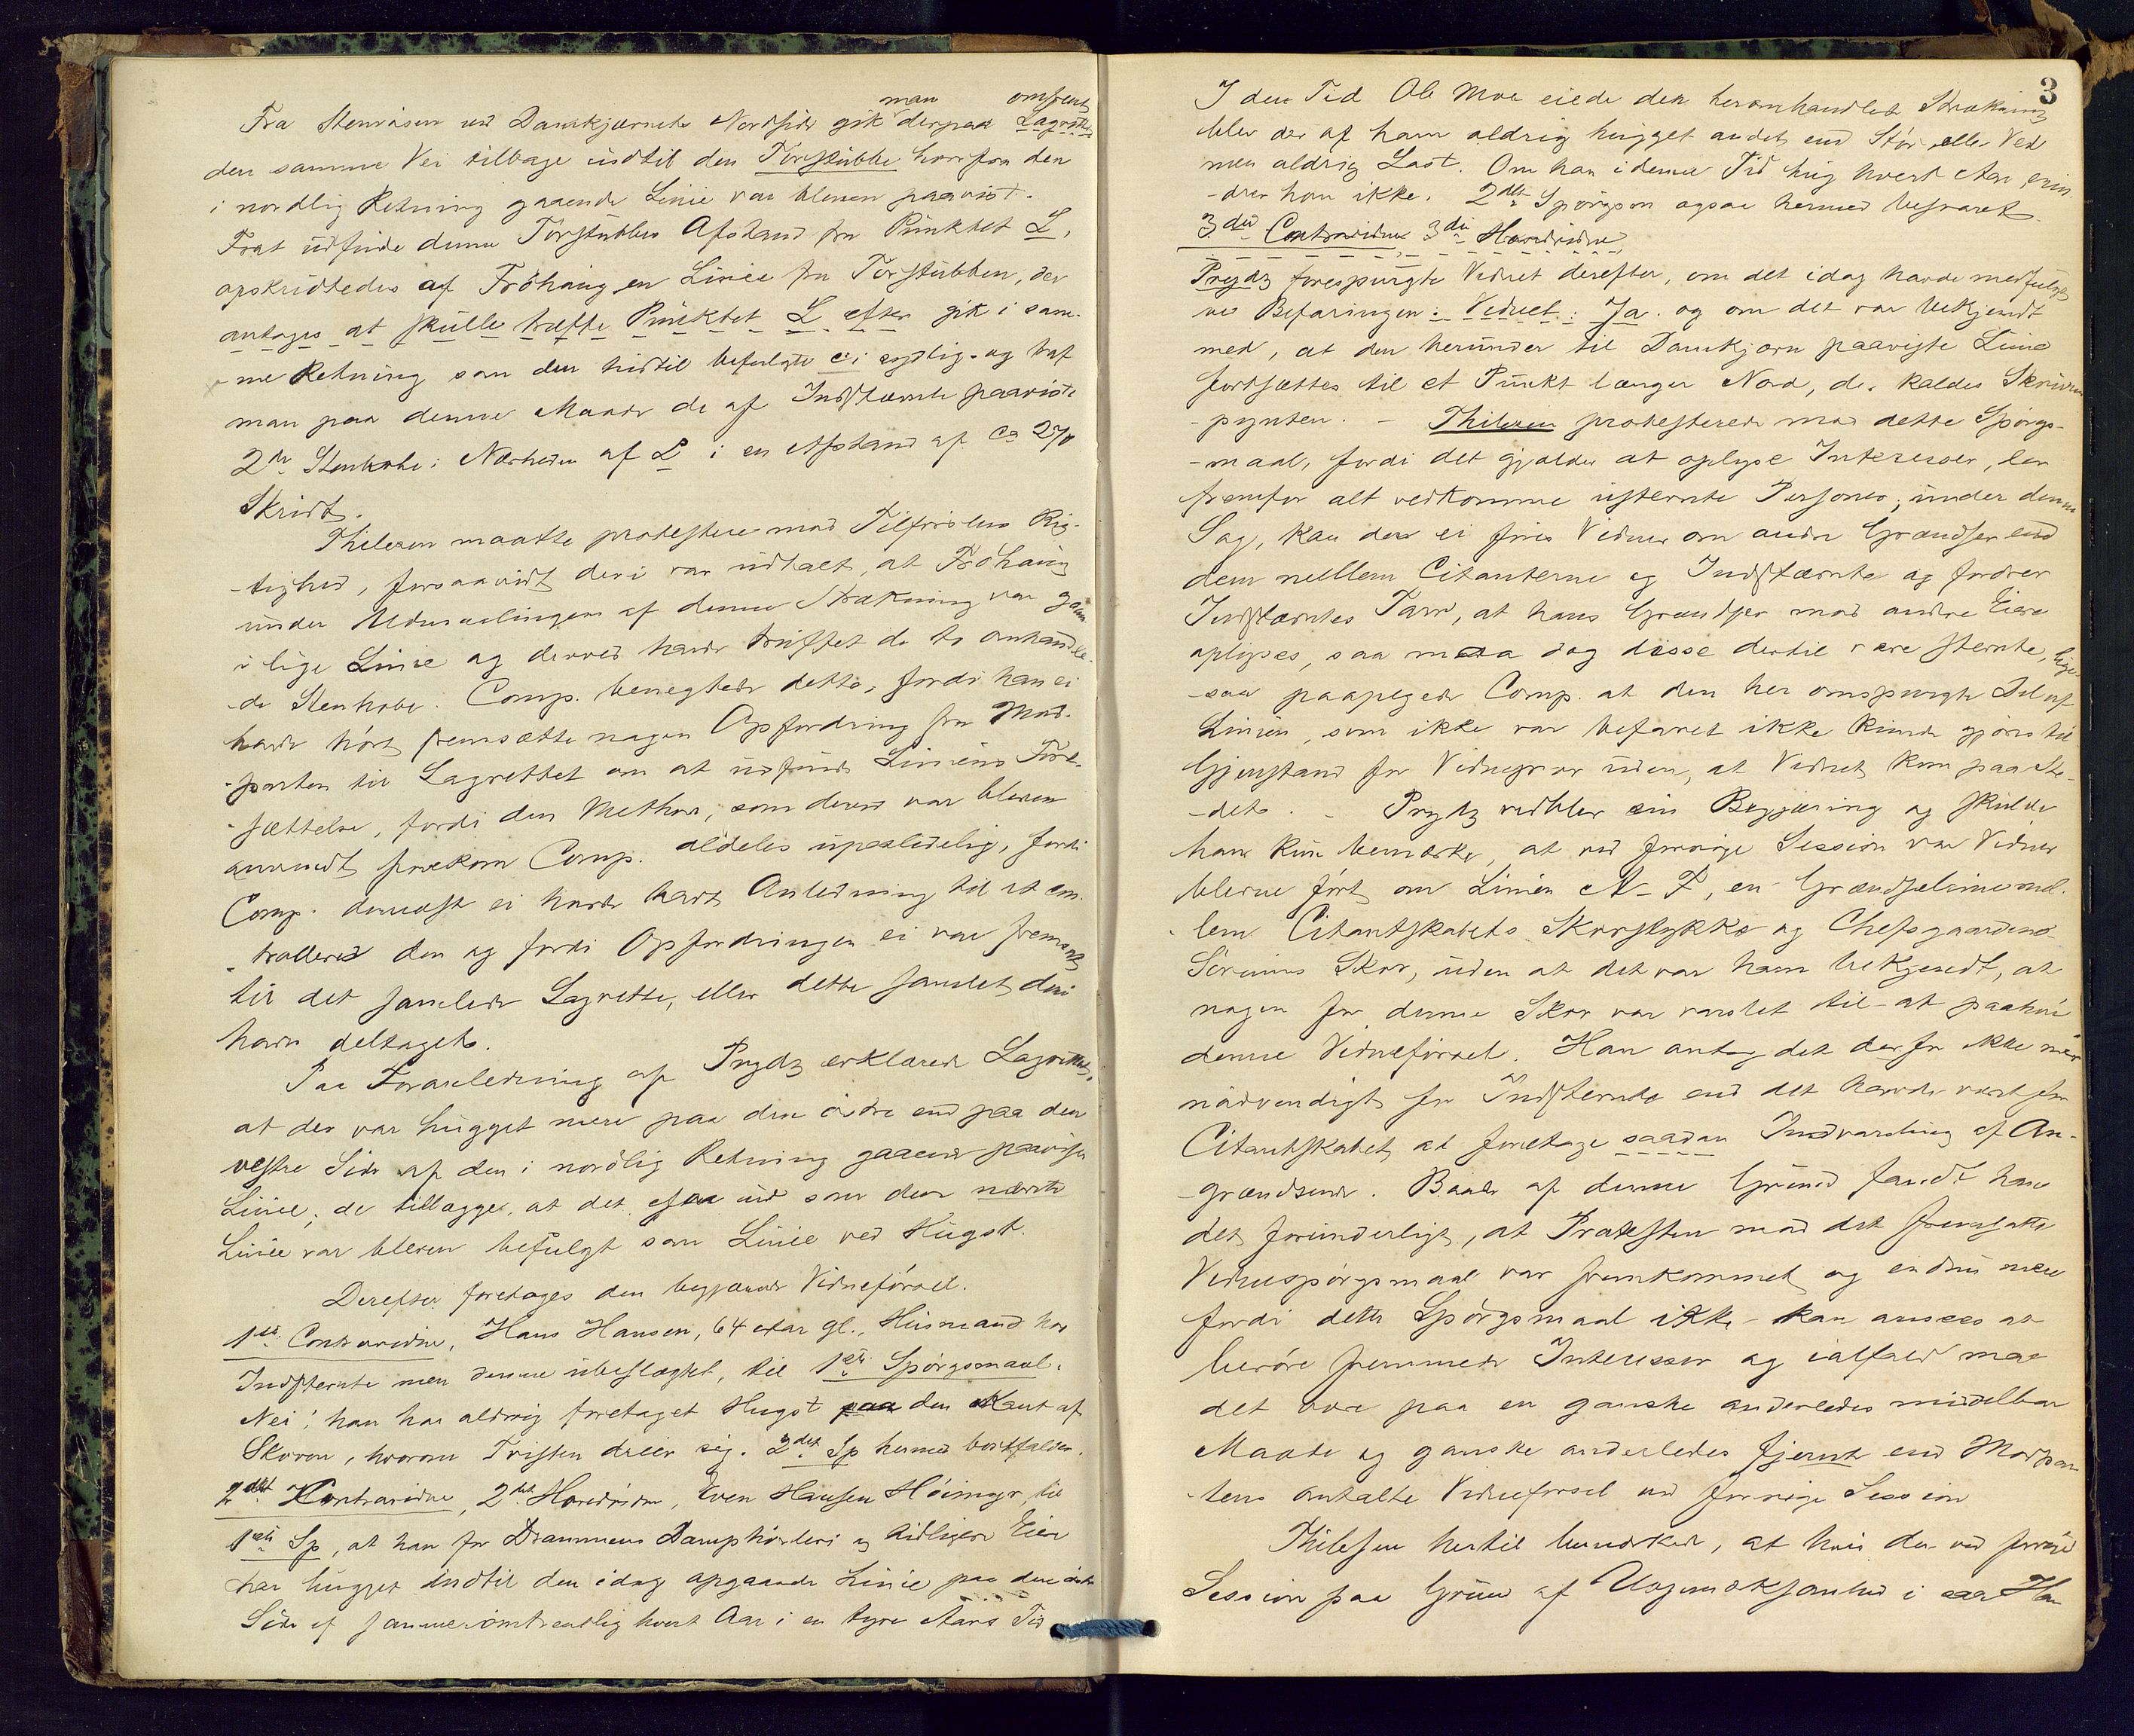 man omtrent
Fra Stenrøsen ved Damkjærnets Nordside gik derpaa Lagrettet
den samme Vei tilbage indtil den Torstubbe hvorfra den
i nordlig Retning gaaende Linie var bleven paavist.
For at udfinde denne Torstubbes Afstand fra Punktet L,
opskridtedes af Fröhaug en Linie fra Torstubben, der
antages at skulle træffe Punktet L efter gik i sam-
me Retning som den hidtil befulgte ei sydlig og traf
man paa denne Maade de af Indstævnte paaviste
2de Stenhobe i Nærheden af L i en Afstand af Ca 270
Skridt.
Thilesen maatte protestere mod Tilførslens Rig-
tighed, forsaavidt deri var udtalt, at Fröhaug
under Udmaalingen af denne Strækning var gaaet
i lige Linie og derved havde truffet de to omhandle-
de Stenhobe. Comp. benegtede dette, fordi han ei
havde hört fremsætte nogen Opfordring fra Mod-
parten til Lagrettet om at udfinde Liniens Fort-
sættelse, fordi den Methode, som derved var bleven
anvendt forekom Comp. aldeles upaalidelig, fordi
Comp. dernæst ei havde havt Anledning til at con-
trollere den og fordi Opfordringen ei var fremsat
til det samlede Lagrette, eller dette samlet deri
havde deltaget.
Paa Foranledning af Prydz erklærede Lagrettet,
at der var hugget mere paa den östre end paa den
vestre Side af den i nordlig Retning gaaende paaviste
Linie; de tillægger, at det saa ud som den nævnte
Linie var bleven befulgt som Linie ved Hugst.
Derefter foretages den begjærede Vidneförsel.
1ste Contravidne, Hans Hansen, 64 Aar gl., Husmand hos
Indstevnte men denne ubeslægtet, til 1ste Spörgsmaal:
Nei; han har aldrig foretaget Hugst paa den Kant af
Skoven, hvorom Tvisten dreier sig. 2det Sp hermed bortfalden.
2det Contravidne, 2det Hovedvidne, Even Hansen Höimyr, til
1ste Sp, at han for Drammens Damphövleri og tidligere Eiere
har hugget indtil den idag opgaaede Linie paa den östre
Side af samme omtrentlig hvert Aar i en tyve Aars Tid
3
I den Tid Ole Moe eiede den heromhandlede Strækning
blev der af ham aldrig hugget andet end Stör eller Ved
men aldrig Last. Om han i denne Tid hug hvert Aar, erin-
drer han ikke. 2det Spörgsm ogsaa hermed besvaret.
3die Contravidne 3die Hovedvidne,
Prydz forespurgte Vidnet derefter, om det idag havde medfulgt
ved Befaringen: Vidnet: Ja. og om det var bekjendt
med, at den herunder til Damkjern paaviste Linie
fortsættes til et Punkt længer Nord, der kaldes
pynten. – Thilesen protesterede mod dette Spörgs-
maal, fordi det gjælder at oplyse Interesser, der
fremfor alt vedkomme ustevnte Personer; under denne
Sag, kan der ei föres Vidner om andre Grændser end
dem mellem Citanterne og Indstævnte og fordrer
Indstævntes Tarv, at hans Grændser mod andre Eiere
oplyses, saa maa dog disse dertil være stevnte, lige-
saa paapegede Comp. at den her omspurgte Del af
Linien, som ikke var befaret ikke kunde gjöres til
Gjenstand for Vidneprov uden, at Vidnet kom paa Ste-
det. – Prydz vedblev sin Begjæring og skulde
han kun bemærke, at ved forrige Session var Vidner
blevne fört om Linien A–P, en Grændselinie mel-
lem Citantskabets Skovstykke og Chefsgaardens
Sörums Skov, uden at det var ham bekjendt, at
nogen for denne Skov var varslet til at paahöre
denne Vidneförsel. Han antog det derfor ikke mere
nödvendigt for Indstevnte end det havde vært for
Citantskabet at foretage saadan Indvarsling af An-
grændsende. Baade af denne Grund fandt han
det forunderligt, at Protesten mod det fremsatte
Vidnespörgsmaal var fremkommet og endnu mere
fordi dette Spörgsmaal ikke kan ansees at
beröre fremmede Interesser og ialfald maa
det være paa en ganske anderledes middelbar
Maade og ganske anderledes fjernt end Modpar-
tens Vidneförsel ved forrige Session
Thilesen hertil bemærkede, at hvis der ved forrige
Session paa Grund af Uopmærksomhed i saa Hen